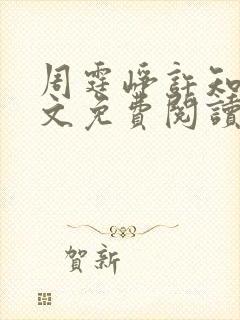 周霆崢許知
文免費閱讀
賀新